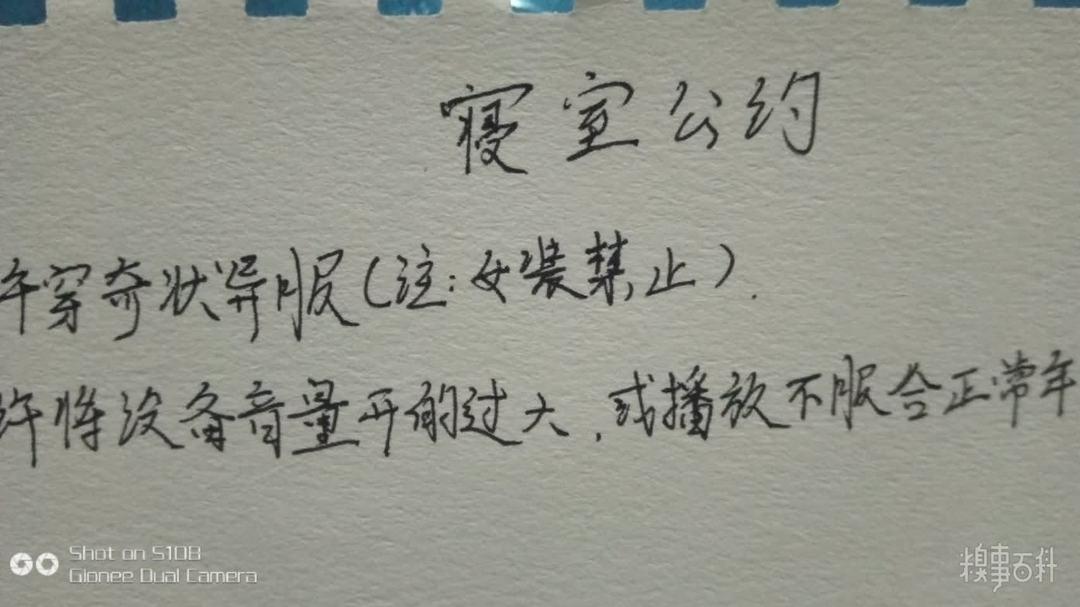 寝室公约
许穿奇状异服(注:女装禁止).
许将设备音量开的过大,或播放不服合正常年
Shot on S10B
Gionee Dual Camera
糗事百科